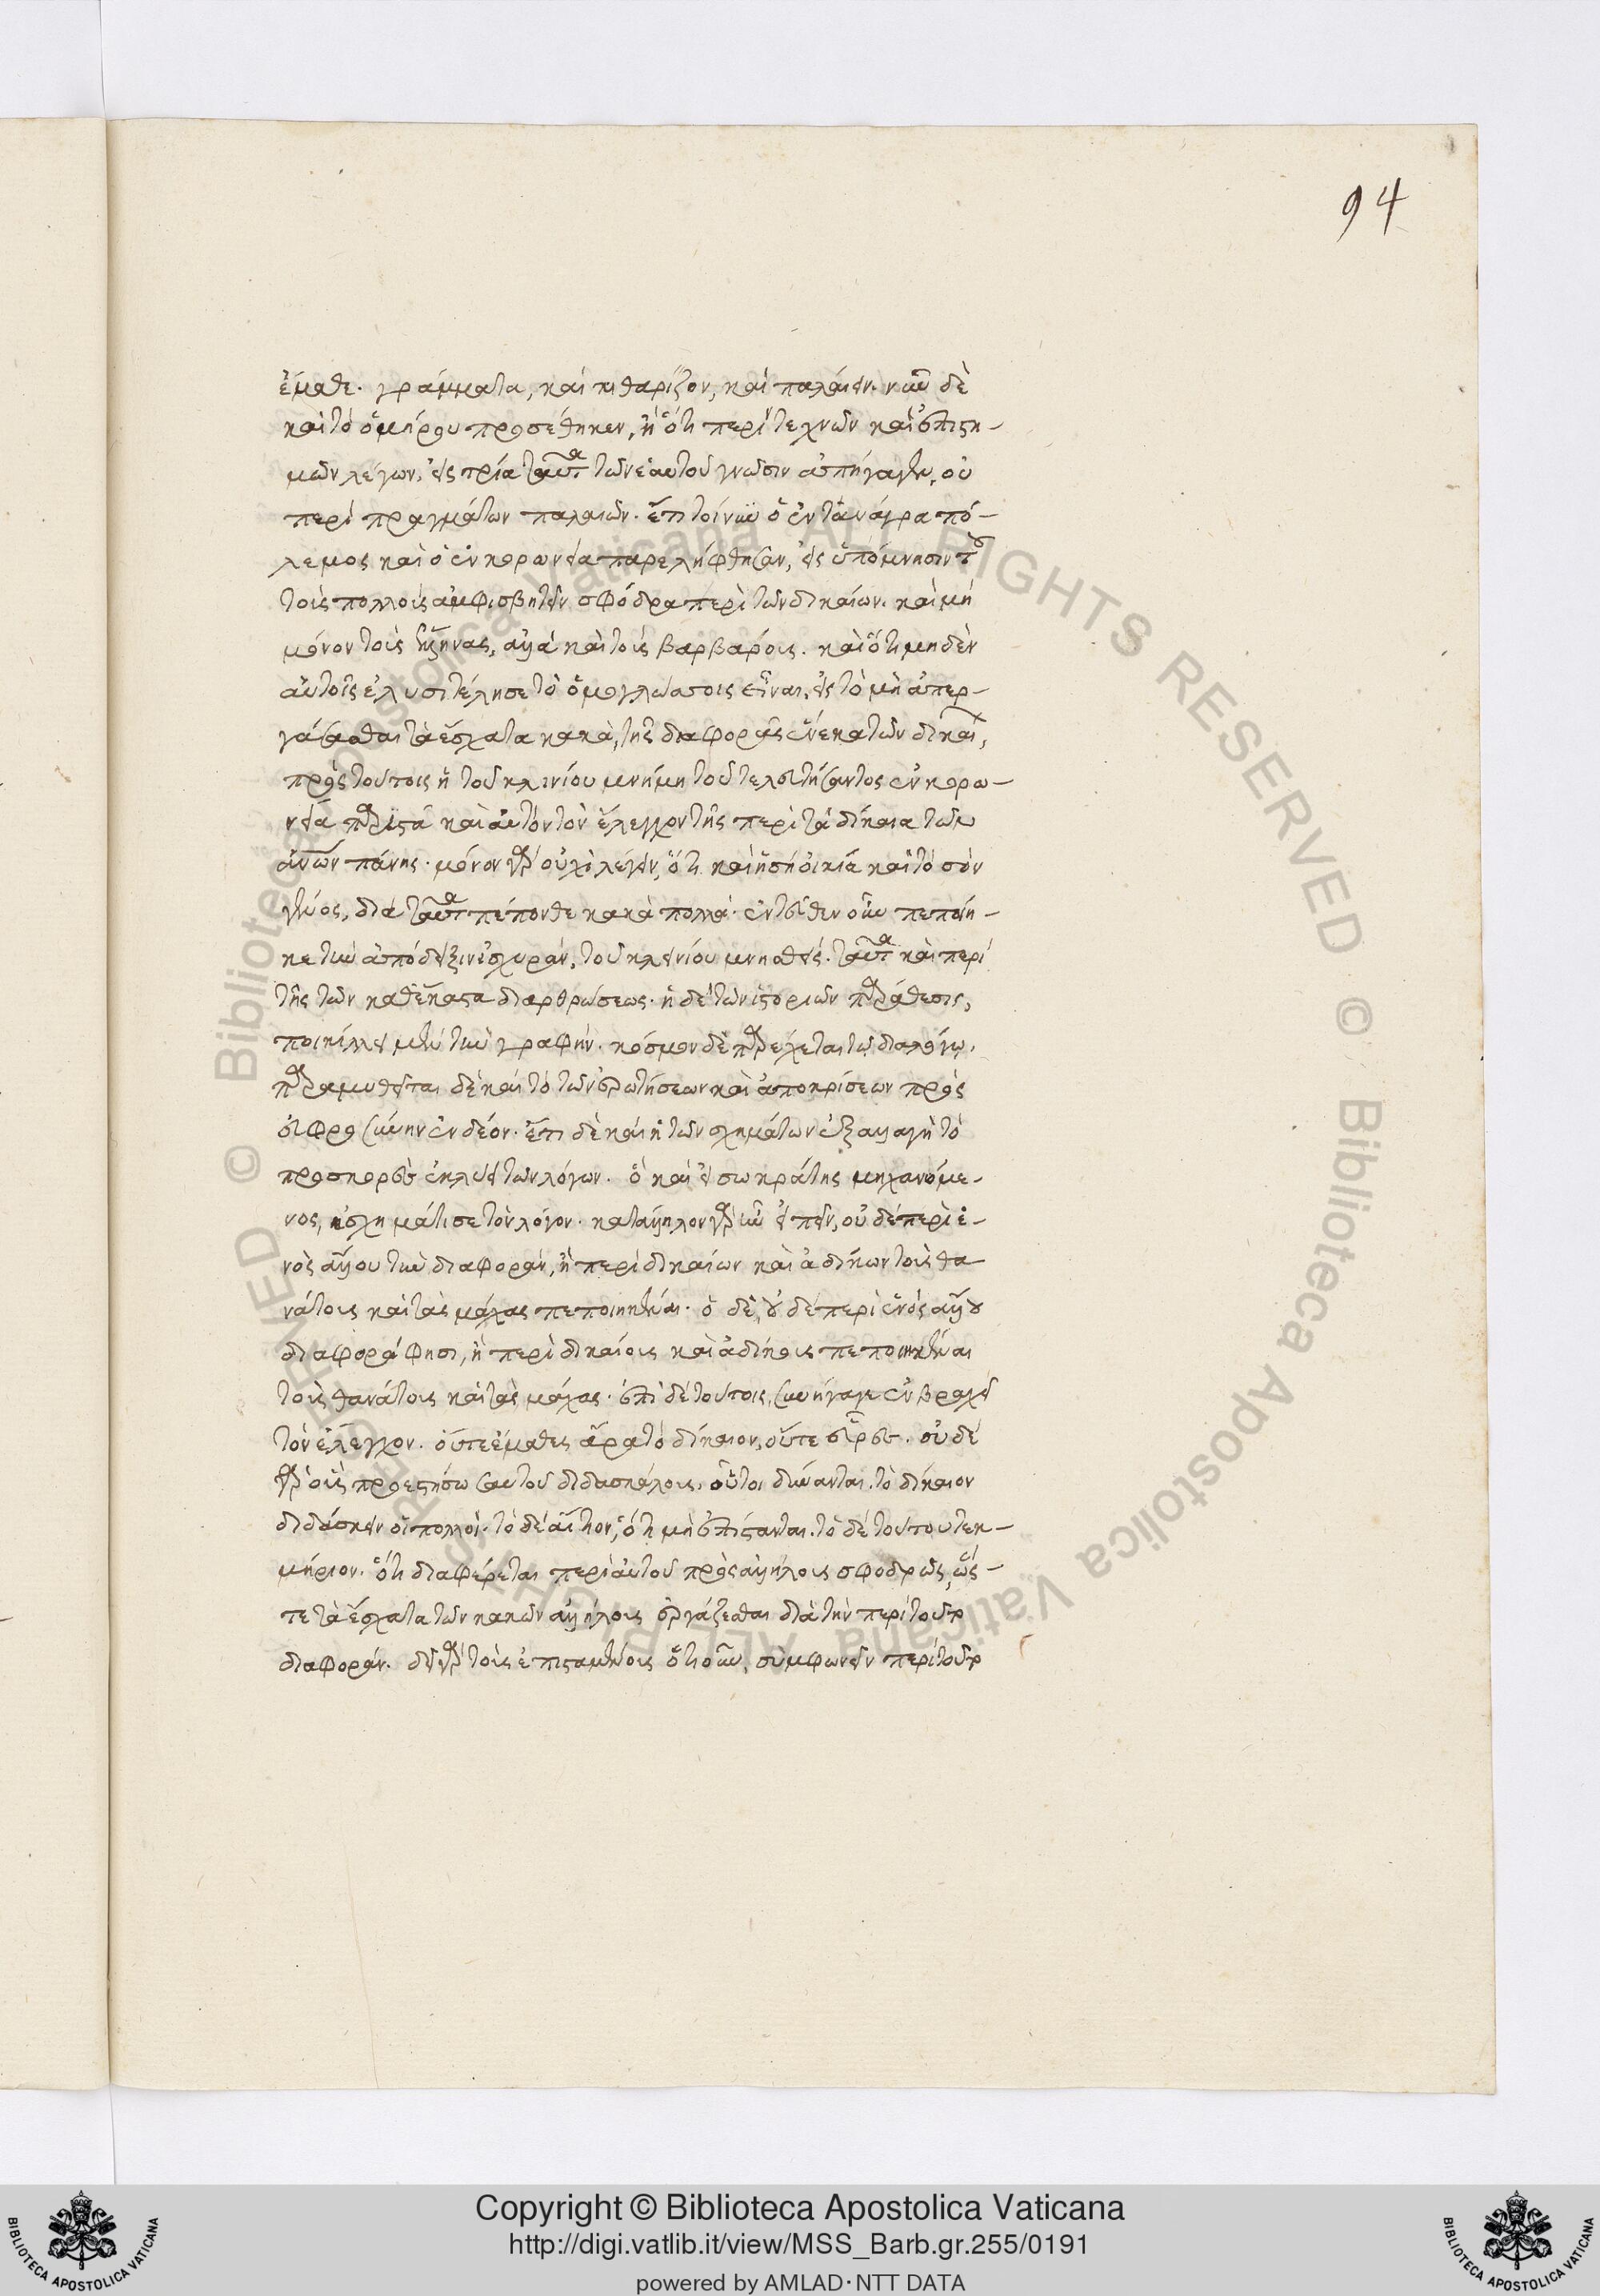 94
ἔμαθε. γράμματα, καὶ κιθαρίζον, καὶ παλαίειν. νῦν δὲ
καὶ τὸ ὁμήρου προσέθηκεν, ἢ ὅτι περὶ τεχνῶν καὶ ἐπιστη-
μῶν λέγων, εἰς τρία ταῦτα τῶν ἑαυτοῦ γνῶσιν ἀπήγαγεν, οὐ
περὶ πραγμάτων παλαιῶν. ἔτι τοίνυν ὁ ἐν τανάγρα πό-
λεμος καὶ ὁ ἐν κορωνεία παρελήφθησαν, εἰς ὑπόμνησιν τοῦ
τοὺς πολλοὺς ἀμφισβητεῖν σφόδρα περὶ τῶν δικαίων. καὶ μὴ
μόνον τοὺς ἕλληνας, ἀλλὰ καὶ τοὺς βαρβάρους. καὶ ὅτι μηδὲν
αὐτοῖς ἐλυσιτέλησε τὸ ὁμογλώσσοις εἶναι, εἰς τὸ μὴ ἀπερ-
γάσασθαι τὰ ἔσχατα κακὰ, τῆς διαφορᾶς ἕνεκα τῶν δικαί,
πρὸς τούτοις ἡ τοῦ κλινίου μνήμη τοῦ τελευτήσαντος ἐν κορω-
νεία παριστᾶ καὶ αὐτὸν τὸν ἔλεγχον τῆς περὶ τὰ δίκαια τῶν
ἀνων πάνης. μόνον γὰρ οὐχὶ λέγειν, ὅτι καὶ ἡ σὴ οἰκία καὶ τὸ σὸν
γένος, διὰ ταῦτα πέπονθε κακὰ πολλά. ἐντεῦθεν οὖν πεποίη-
κε τὴν ἀπόδειξιν ἰσχυρὰν, τοῦ κλεινίου μνησθείς. ταῦτα καὶ περὶ
τῆς τῶν καθέκαστα διαρθρώσεως. ἡ δὲ τῶν ἱστοριῶν παράθεσις,
ποικίλλει μὲν τὴν γραφήν. κόσμον δὲ παρέχεται τῷ διαλόγῳ.
παραμυθεῖται δὲ καὶ τὸ τῶν ἐρωτήσεων καὶ ἀποκρίσεων πρὸς
εὐφροσύνην ἐνδέον. ἔτι δὲ καὶ ἡ τῶν σχημάτων ἐξαλλαγὴ τὸ
προσκορὲς ἐκλύει τῶν λόγων. ὃ καὶ ὁ σωκράτης μηχανόμε-
νος, ἐσχημάτισε τὸν λόγον. κατάλληλον γὰρ ἦν εἰπεῖν, οὐδὲ περὶ ἑ-
νὸς ἄλλου τὴν διαφορὰν, ἢ περὶ δικαίων καὶ ἀδίκων τοὺς θα-
νάτους καὶ τὰς μάχας πεποιηκέναι. ὁ δὲ, οὐδὲ περὶ ἑνὸς ἄλλου
διαφορά φησι, ἢ περὶ δικαίους καὶ ἀδίκους πεποιηκέναι
τοὺς θανάτους καὶ τὰς μάχας. ἐπὶ δὲ τούτοις, συνήγαγεν ἐν βραχεῖ
τὸν ἔλεγχον. οὔτε ἔμαθες ἄρα τὸ δίκαιον, οὔτε εὗρες. οὐδὲ
γὰρ οὓς προεστήσω σαυτοῦ διδασκάλους, οὗτοι δύνανται τὸ δίκαιον
διδάσκειν οἱ πολλοί. τὸ δὲ αἴτιον, ὅτι μὴ ἐπίστανται. τὸ δὲ τούτου τεκ-
μήριον. ὅτι διαφέρεται περὶ αὐτοῦ πρὸς ἀλλήλους σφοδρῶς, ὥς-
τε τὰ ἔσχατα τῶν κακῶν ἀλλήλους ἐργάζεσθαι διὰ τὴν περὶ τοῦτο
διαφοράν. δεῖ γὰρ τοὺς ἐπισταμένους ὅτι οὖν, σύμφωνεῖν περὶ τοῦτο
© Biblioteca Apostolica Vaticana ALL RIGHTS RESERVED © Biblioteca Apostolica Vaticana ALL RIGHTS RESERVED
Copyright © Biblioteca Apostolica Vaticana
http://digi.vatlib.it/view/MSS_Barb.gr.255/0191
powered by AMLAD·NTT DATA
BIBLIOTECA APOSTOLICA VATICANA
BIBLIOTECA APOSTOLICA VATICANA